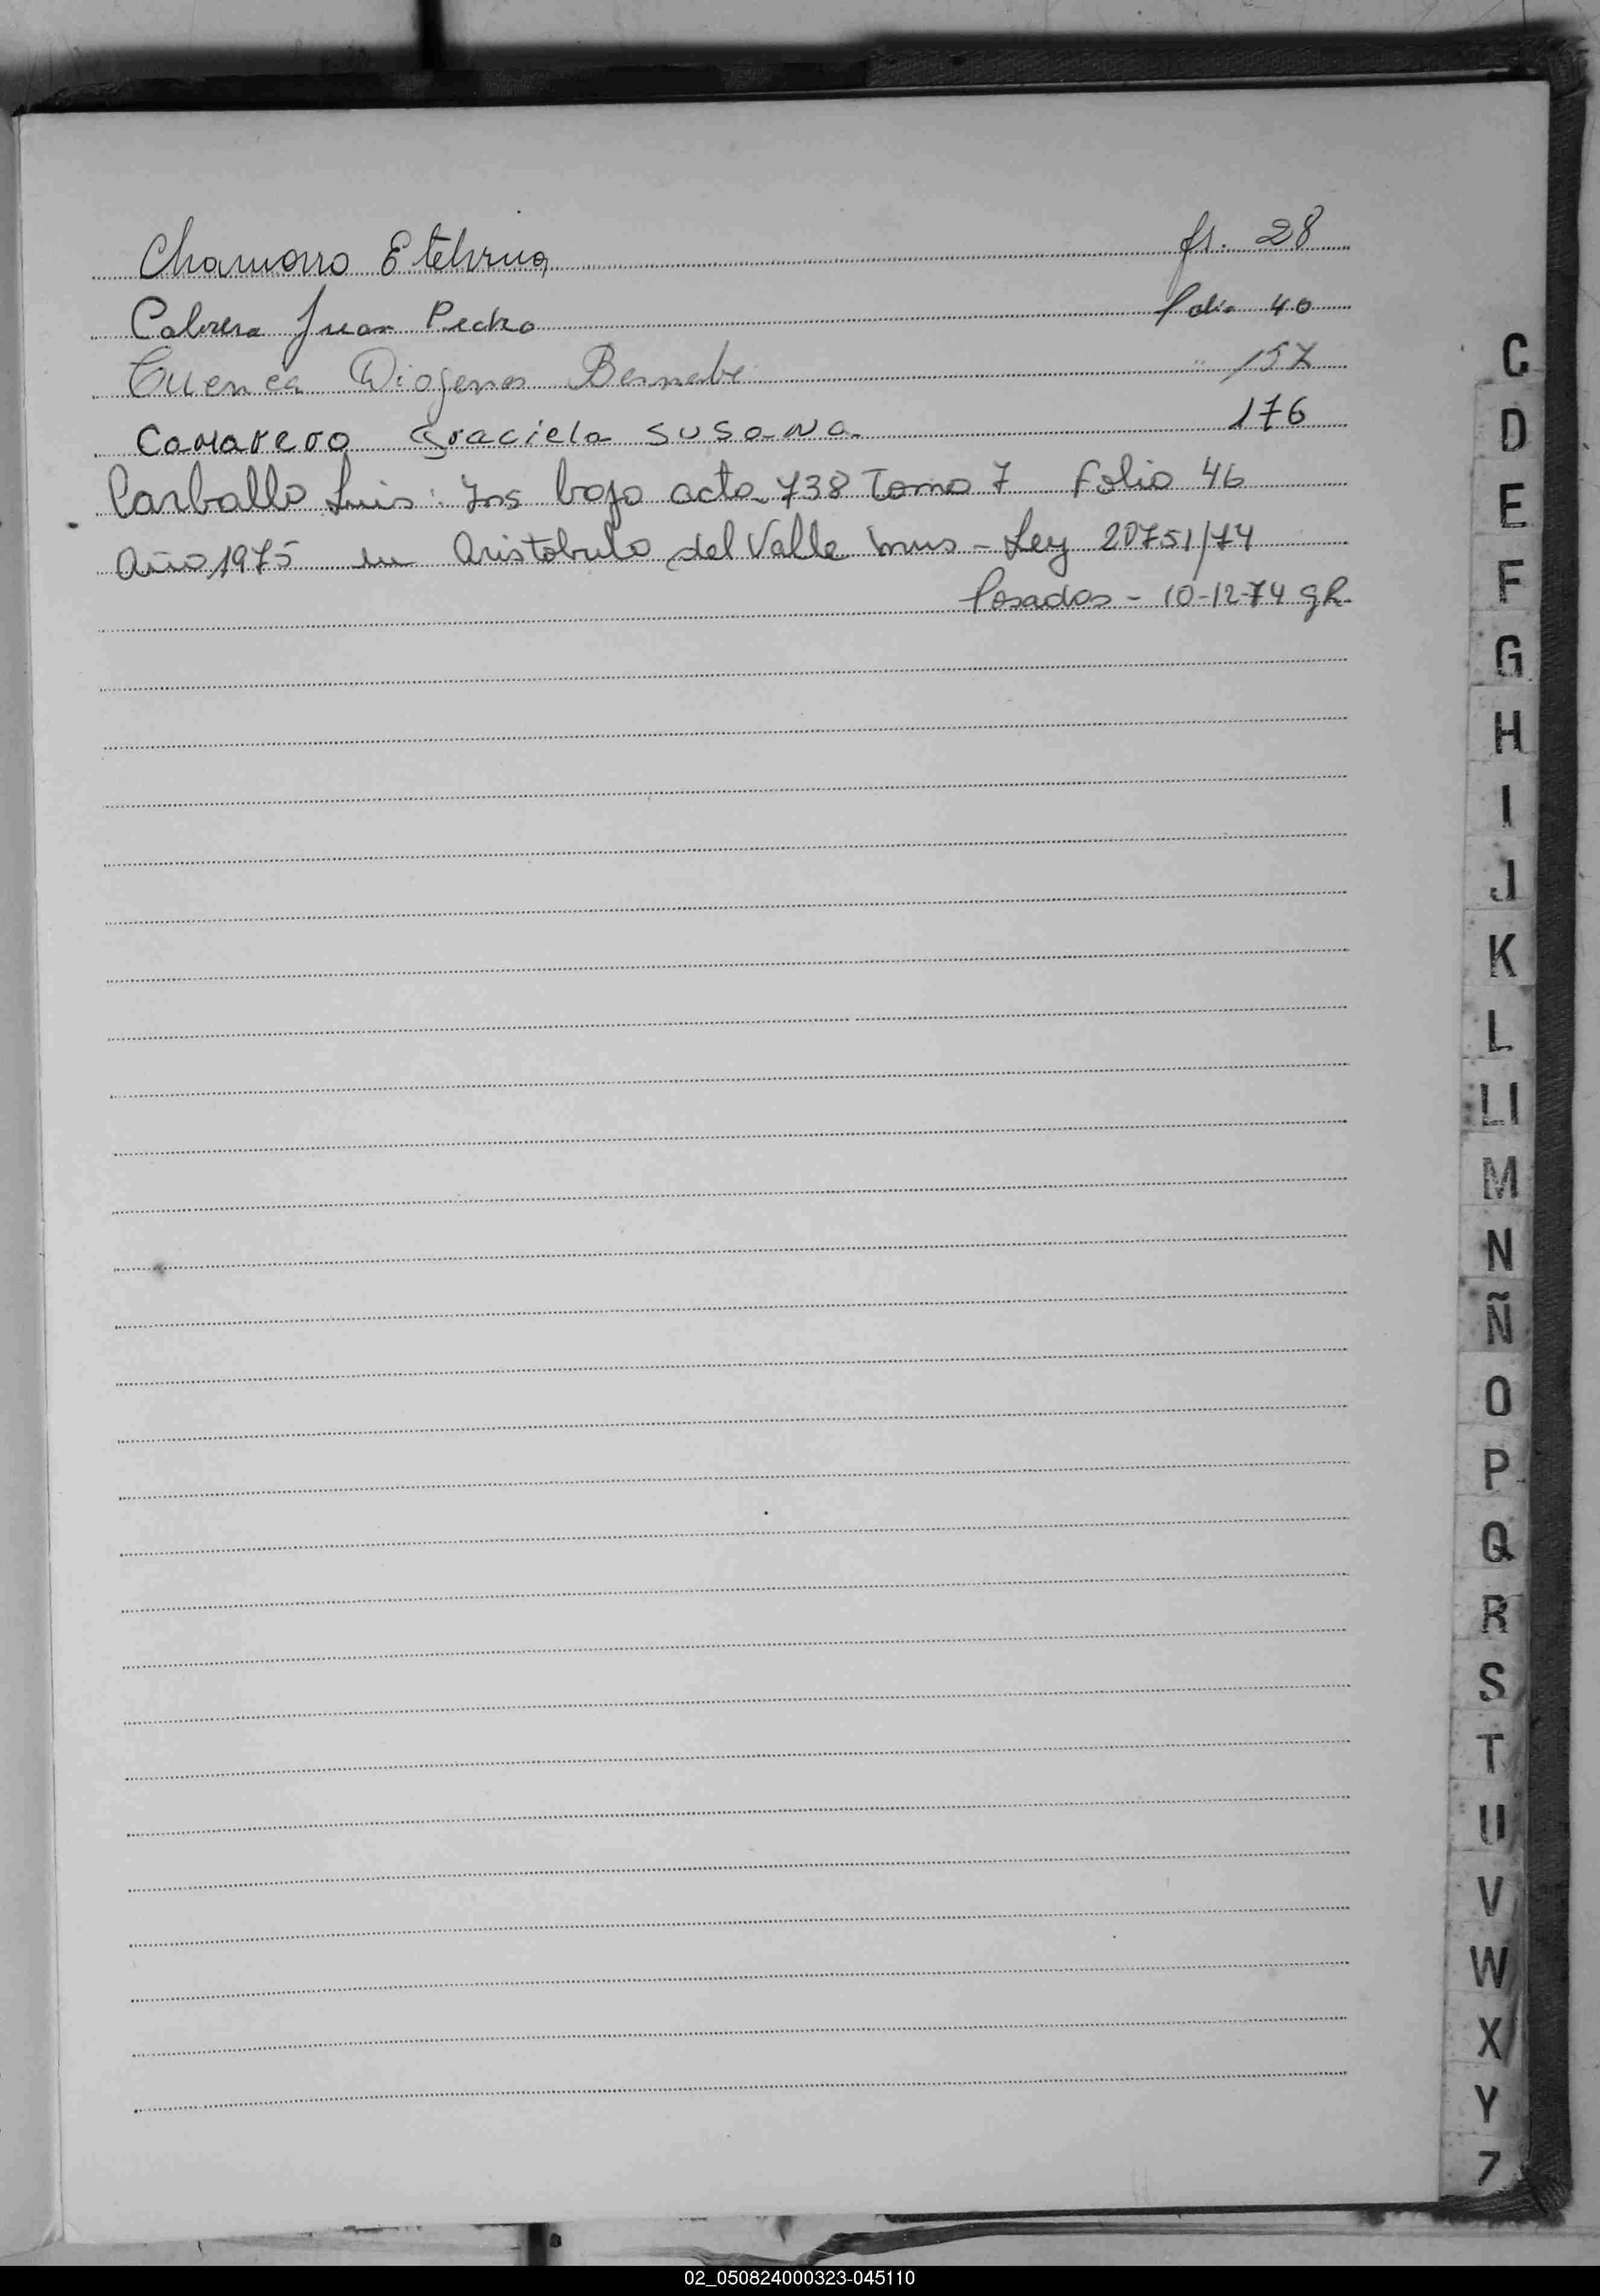 Chamorro Etelvina fs. 28
Cabrera Juan Pedro folio 40
Cuenca Diogenes Bernabe " 157
Camarero Graciela Susana 176
Carballo Luis: Ins bajo acta 738 Tomo 7 Folio 46
Año 1975 en Aristobulo del Valle Mns - Ley 20751/74
Posadas - 10-12-74 gR
C
D
E
F
G
H
I
J
K
L
Ll
M
N
Ñ
O
P
Q
R
S
T
U
V
W
X
Y
Z
02_050824000323-045110